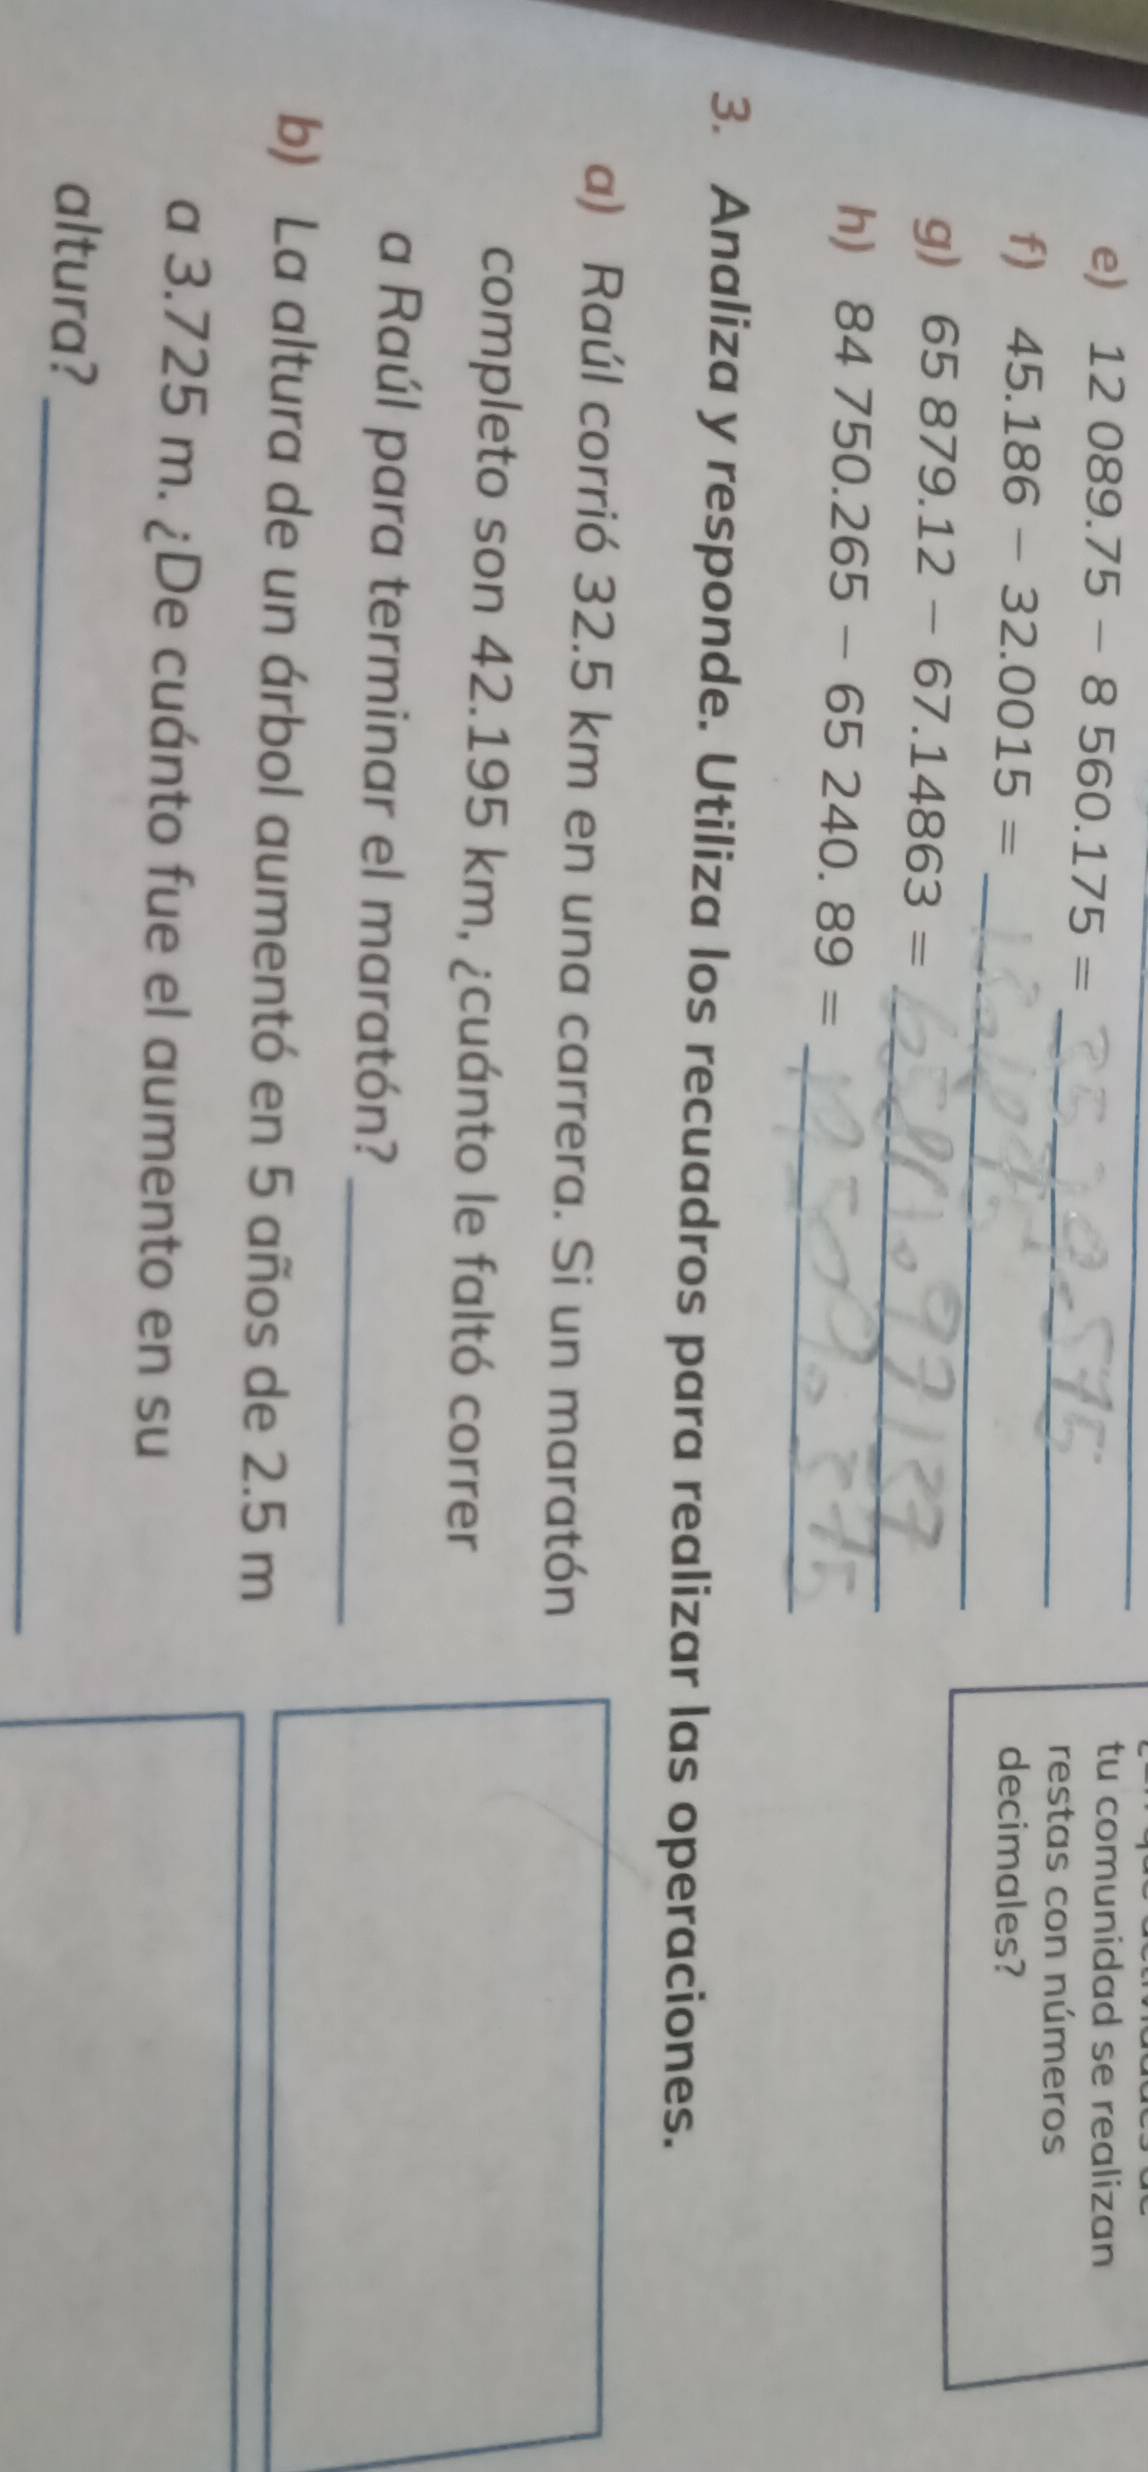 e) 12 089.75 – 8 560.175 =
f) 45.186 – 32.0015 =
g) 65 879.12 – 67.14863 =
h) 84 750.265 – 65 240. 89 =
tu comunidad se realizan
restas con números
decimales?
3. Analiza y responde. Utiliza los recuadros para realizar las operaciones.
a) Raúl corrió 32.5 km en una carrera. Si un maratón
completo son 42.195 km, ¿cuánto le faltó correr
a Raúl para terminar el maratón?
b) La altura de un árbol aumentó en 5 años de 2.5 m
a 3.725 m. ¿De cuánto fue el aumento en su
altura?